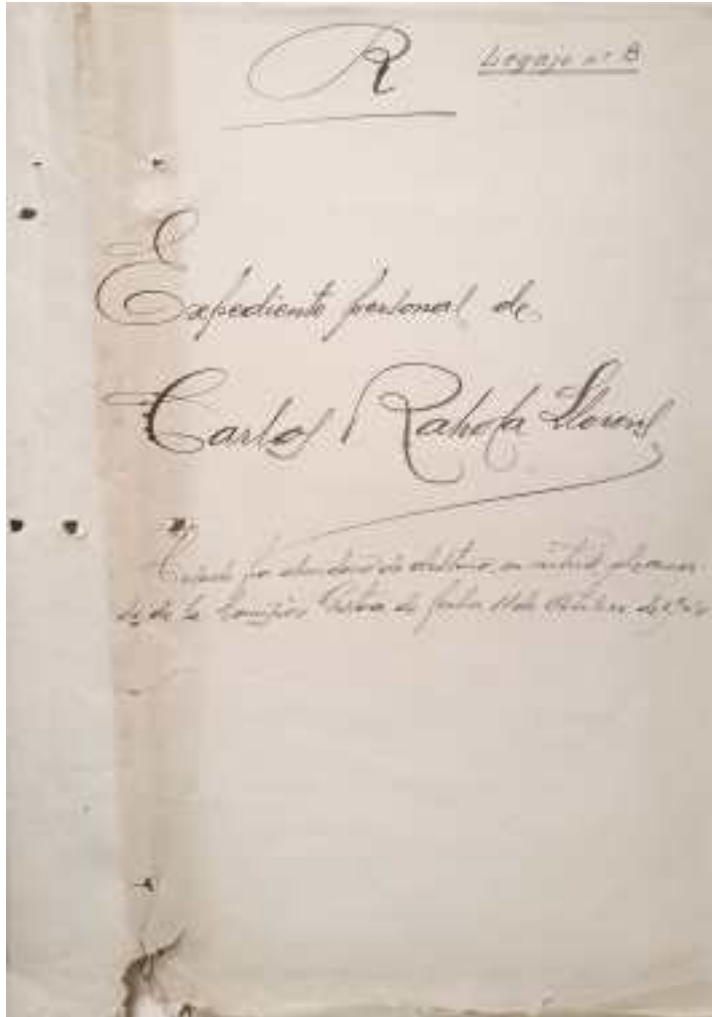 R
Legajo nº 8
Expediente personal de
Carlos Rahola Llorens
Cesado por abandono de destino, en virtud de acuer-
do de la Comisión Gestora de fecha 11 de Octubre de